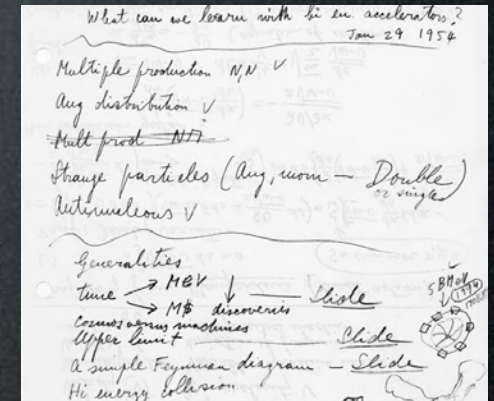 What can we learn with hi en. accelerators?
Jan 29 1954
Multiple production N,N V
Ang distribution V
Mult prod Nπ
Strange particles (Ang, mom — Double
or single)
Antinucleons V
Generalities
time → MeV
→ M$ discoveries — Slide
cosmos versus machines
Upper limit — Slide
A simple Feynman diagram — Slide
Hi energy collision
5 BMeV
1994